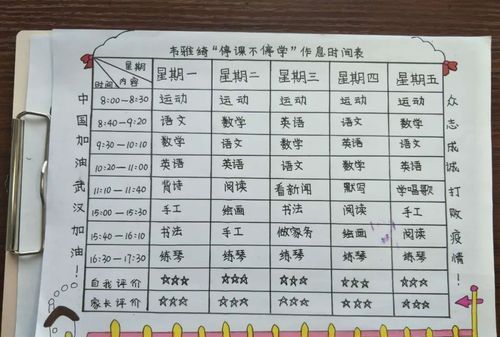 韦雅绮“停课不停学”作息时间表
星期 内容 时间 星期一 星期二 星期三 星期四 星期五
8:00—8:30 运动 运动 运动 运动 运动
8:40—9:20 语文 数学 英语 语文 数学
9:30—10:10 数学 语文 数学 数学 语文
10:20—11:00 英语 英语 语文 数学 英语
11:10—11:40 背诗 阅读 看新闻 默写 学唱歌
15:00—15:30 手工 绘画 书法 阅读 手工
15:40—16:10 书法 手工 做家务 绘画 阅读
16:30—17:30 练琴 练琴 练琴 练琴 练琴
自我评价 ☆☆☆ ☆☆☆ ☆☆☆ ☆☆☆ ☆☆☆
家长评价 ☆☆☆ ☆☆☆ ☆☆☆ ☆☆☆ ☆☆☆
中国加油武汉加油！
众志成诚打败疫情！